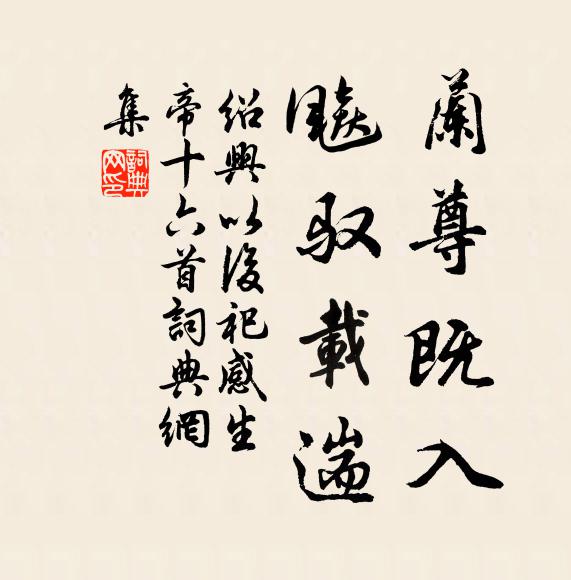 蘭尊既入
飈馭載遄
紹興以後祀感生
帝十六首詞典網
集
詞典
网印